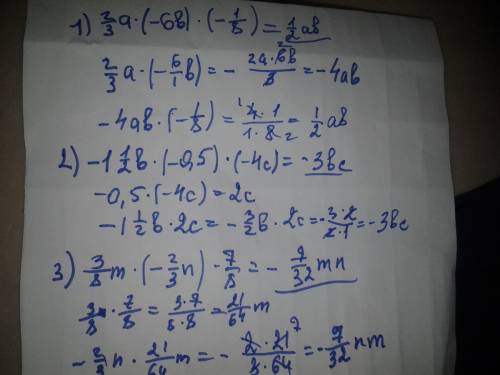 1) 2/3 a · (-6b) · (-1/8) = 1/2 ab
2/3 a · (-6/1 b) = - 2a·6b/3 = -4ab
-4ab · (-1/8) = 4·1/1·8 = 1/2 ab
2) -1 1/2 b · (-0,5) · (-4c) = -3bc
-0,5 · (-4c) = 2c
-1 1/2 b · 2c = - 3/2 b · 2c = - 3·2/2·1 = -3bc
3) 3/8 m · (-2/3 n) · 7/8 = - 7/32 mn
3/8 · 7/8 = 3·7/8·8 = 21/64 m
- 2/3 n · 21/64 m = - 2·21/3·64 = - 7/32 nm